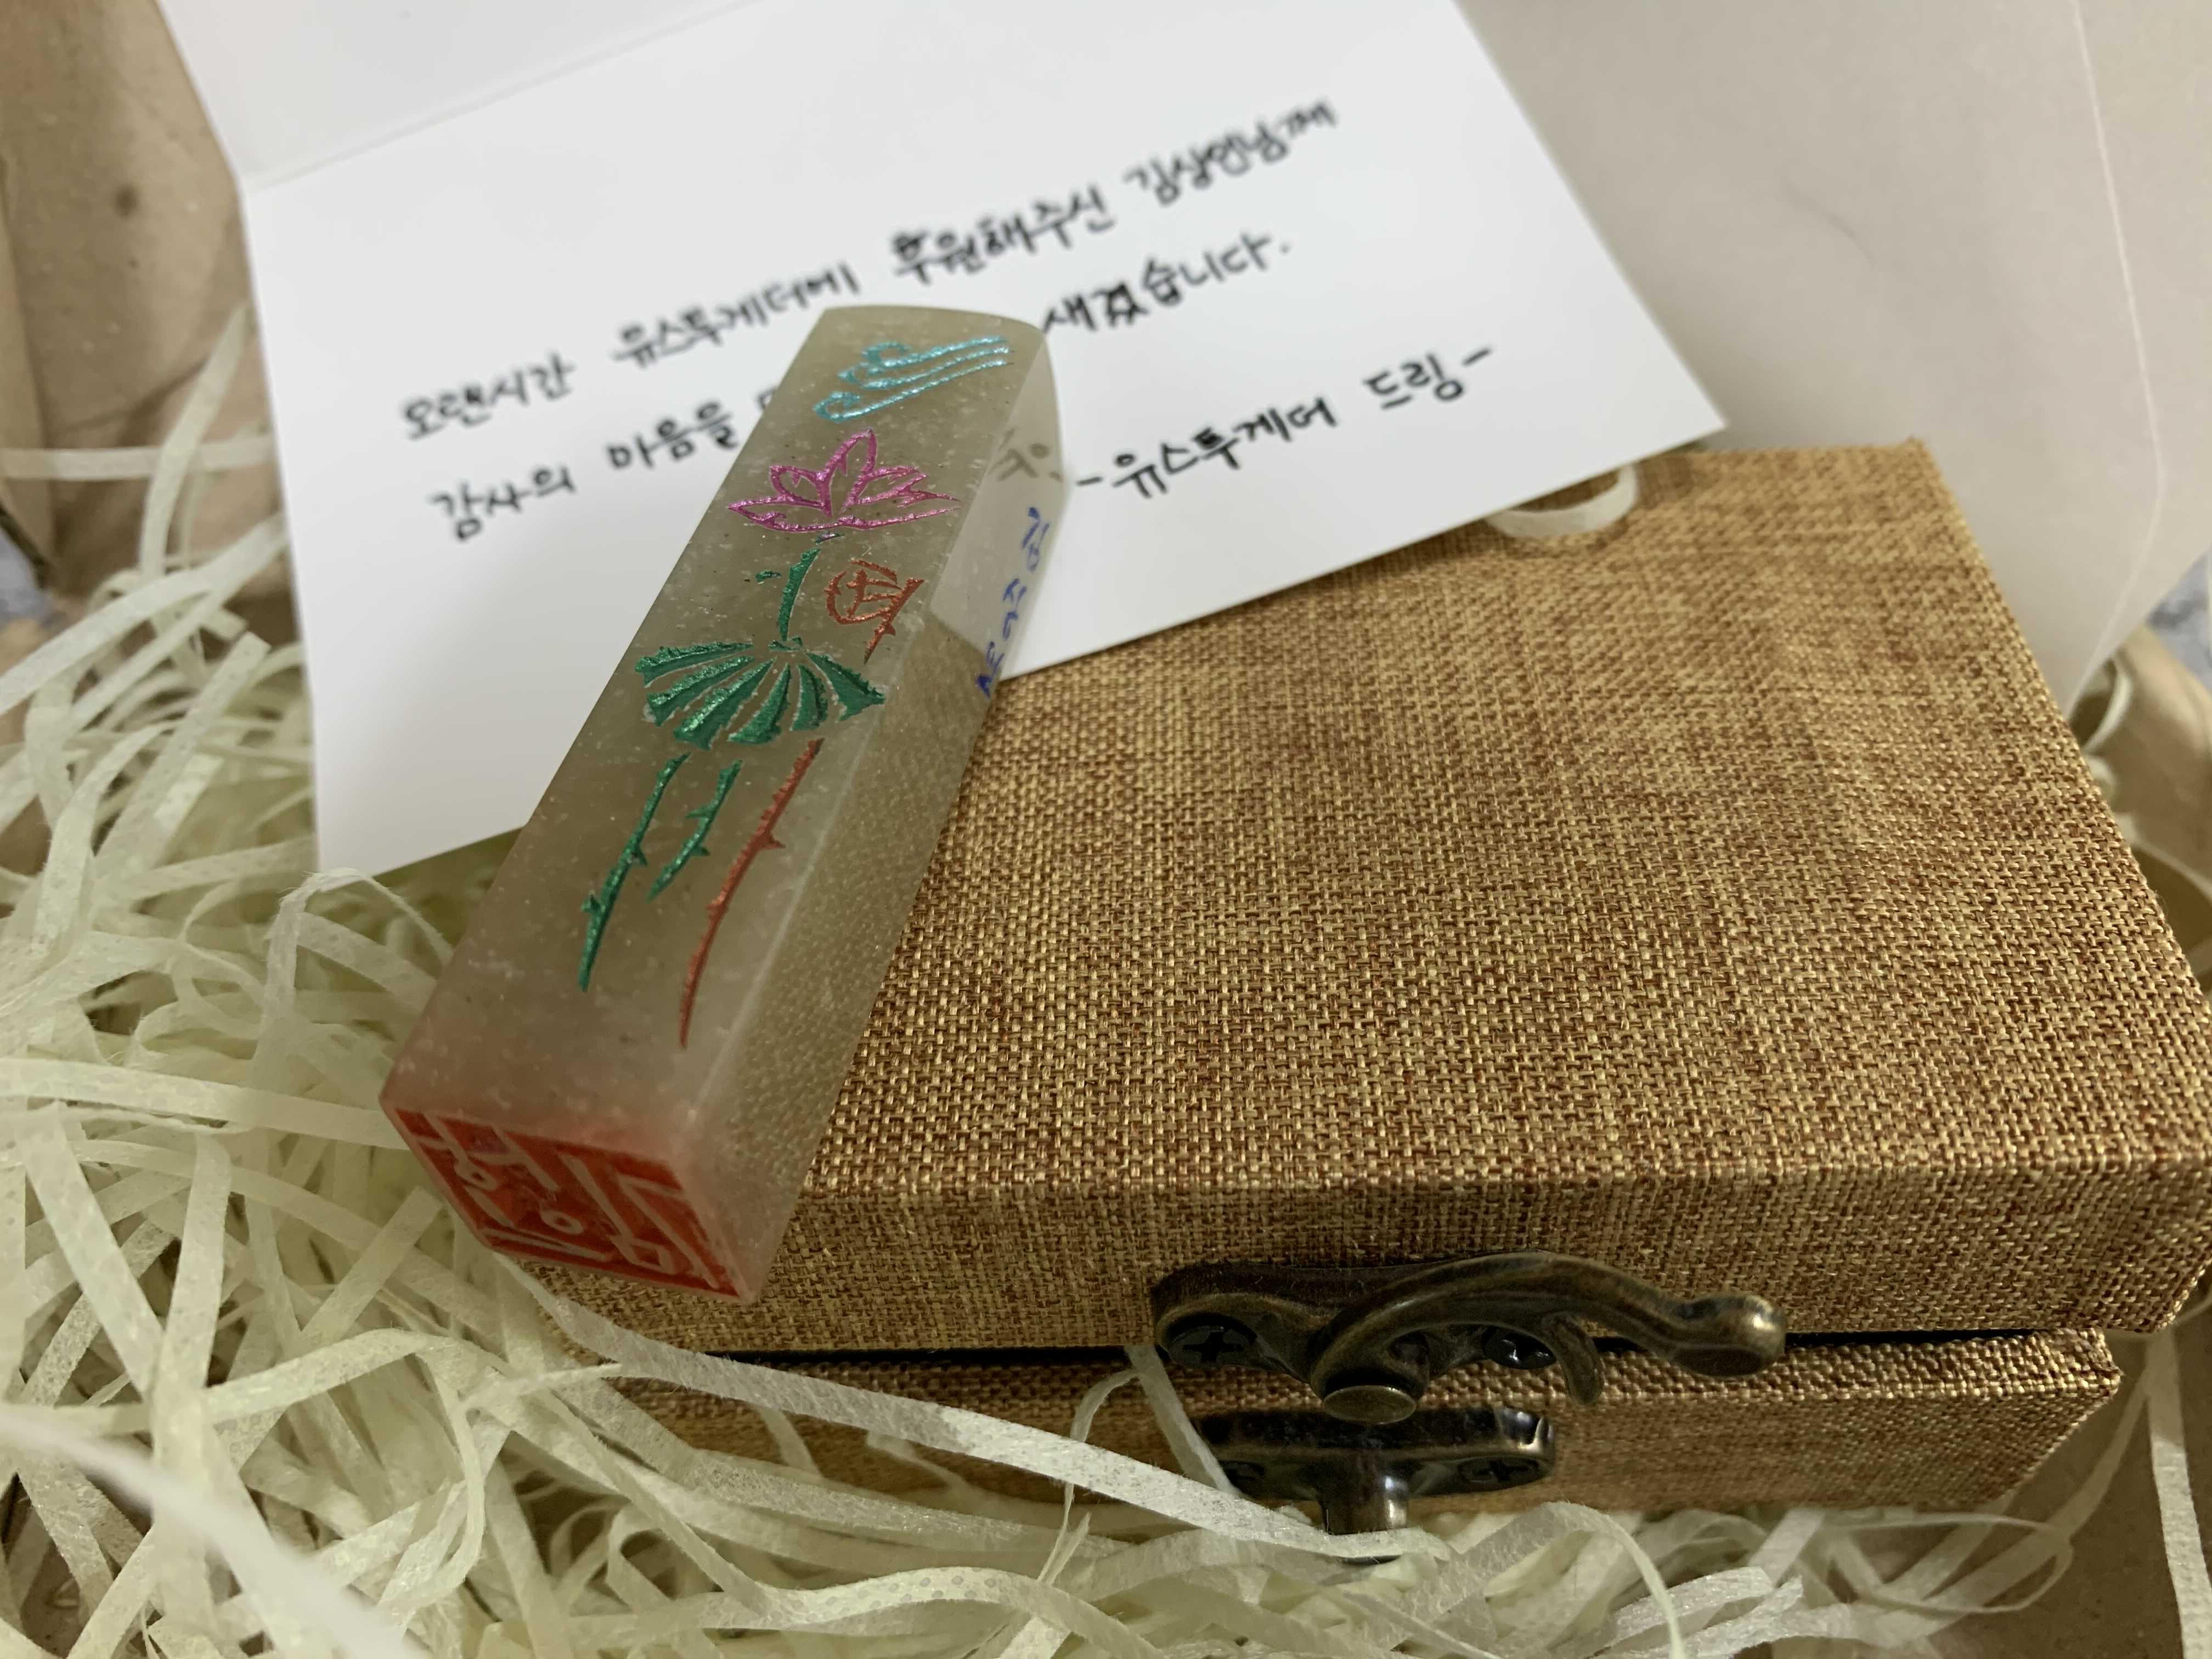 오랜시간 유스투게더에 후원해주신 김상연님께
감사의 마음을 새겼습니다.
-유스투게더 드림-